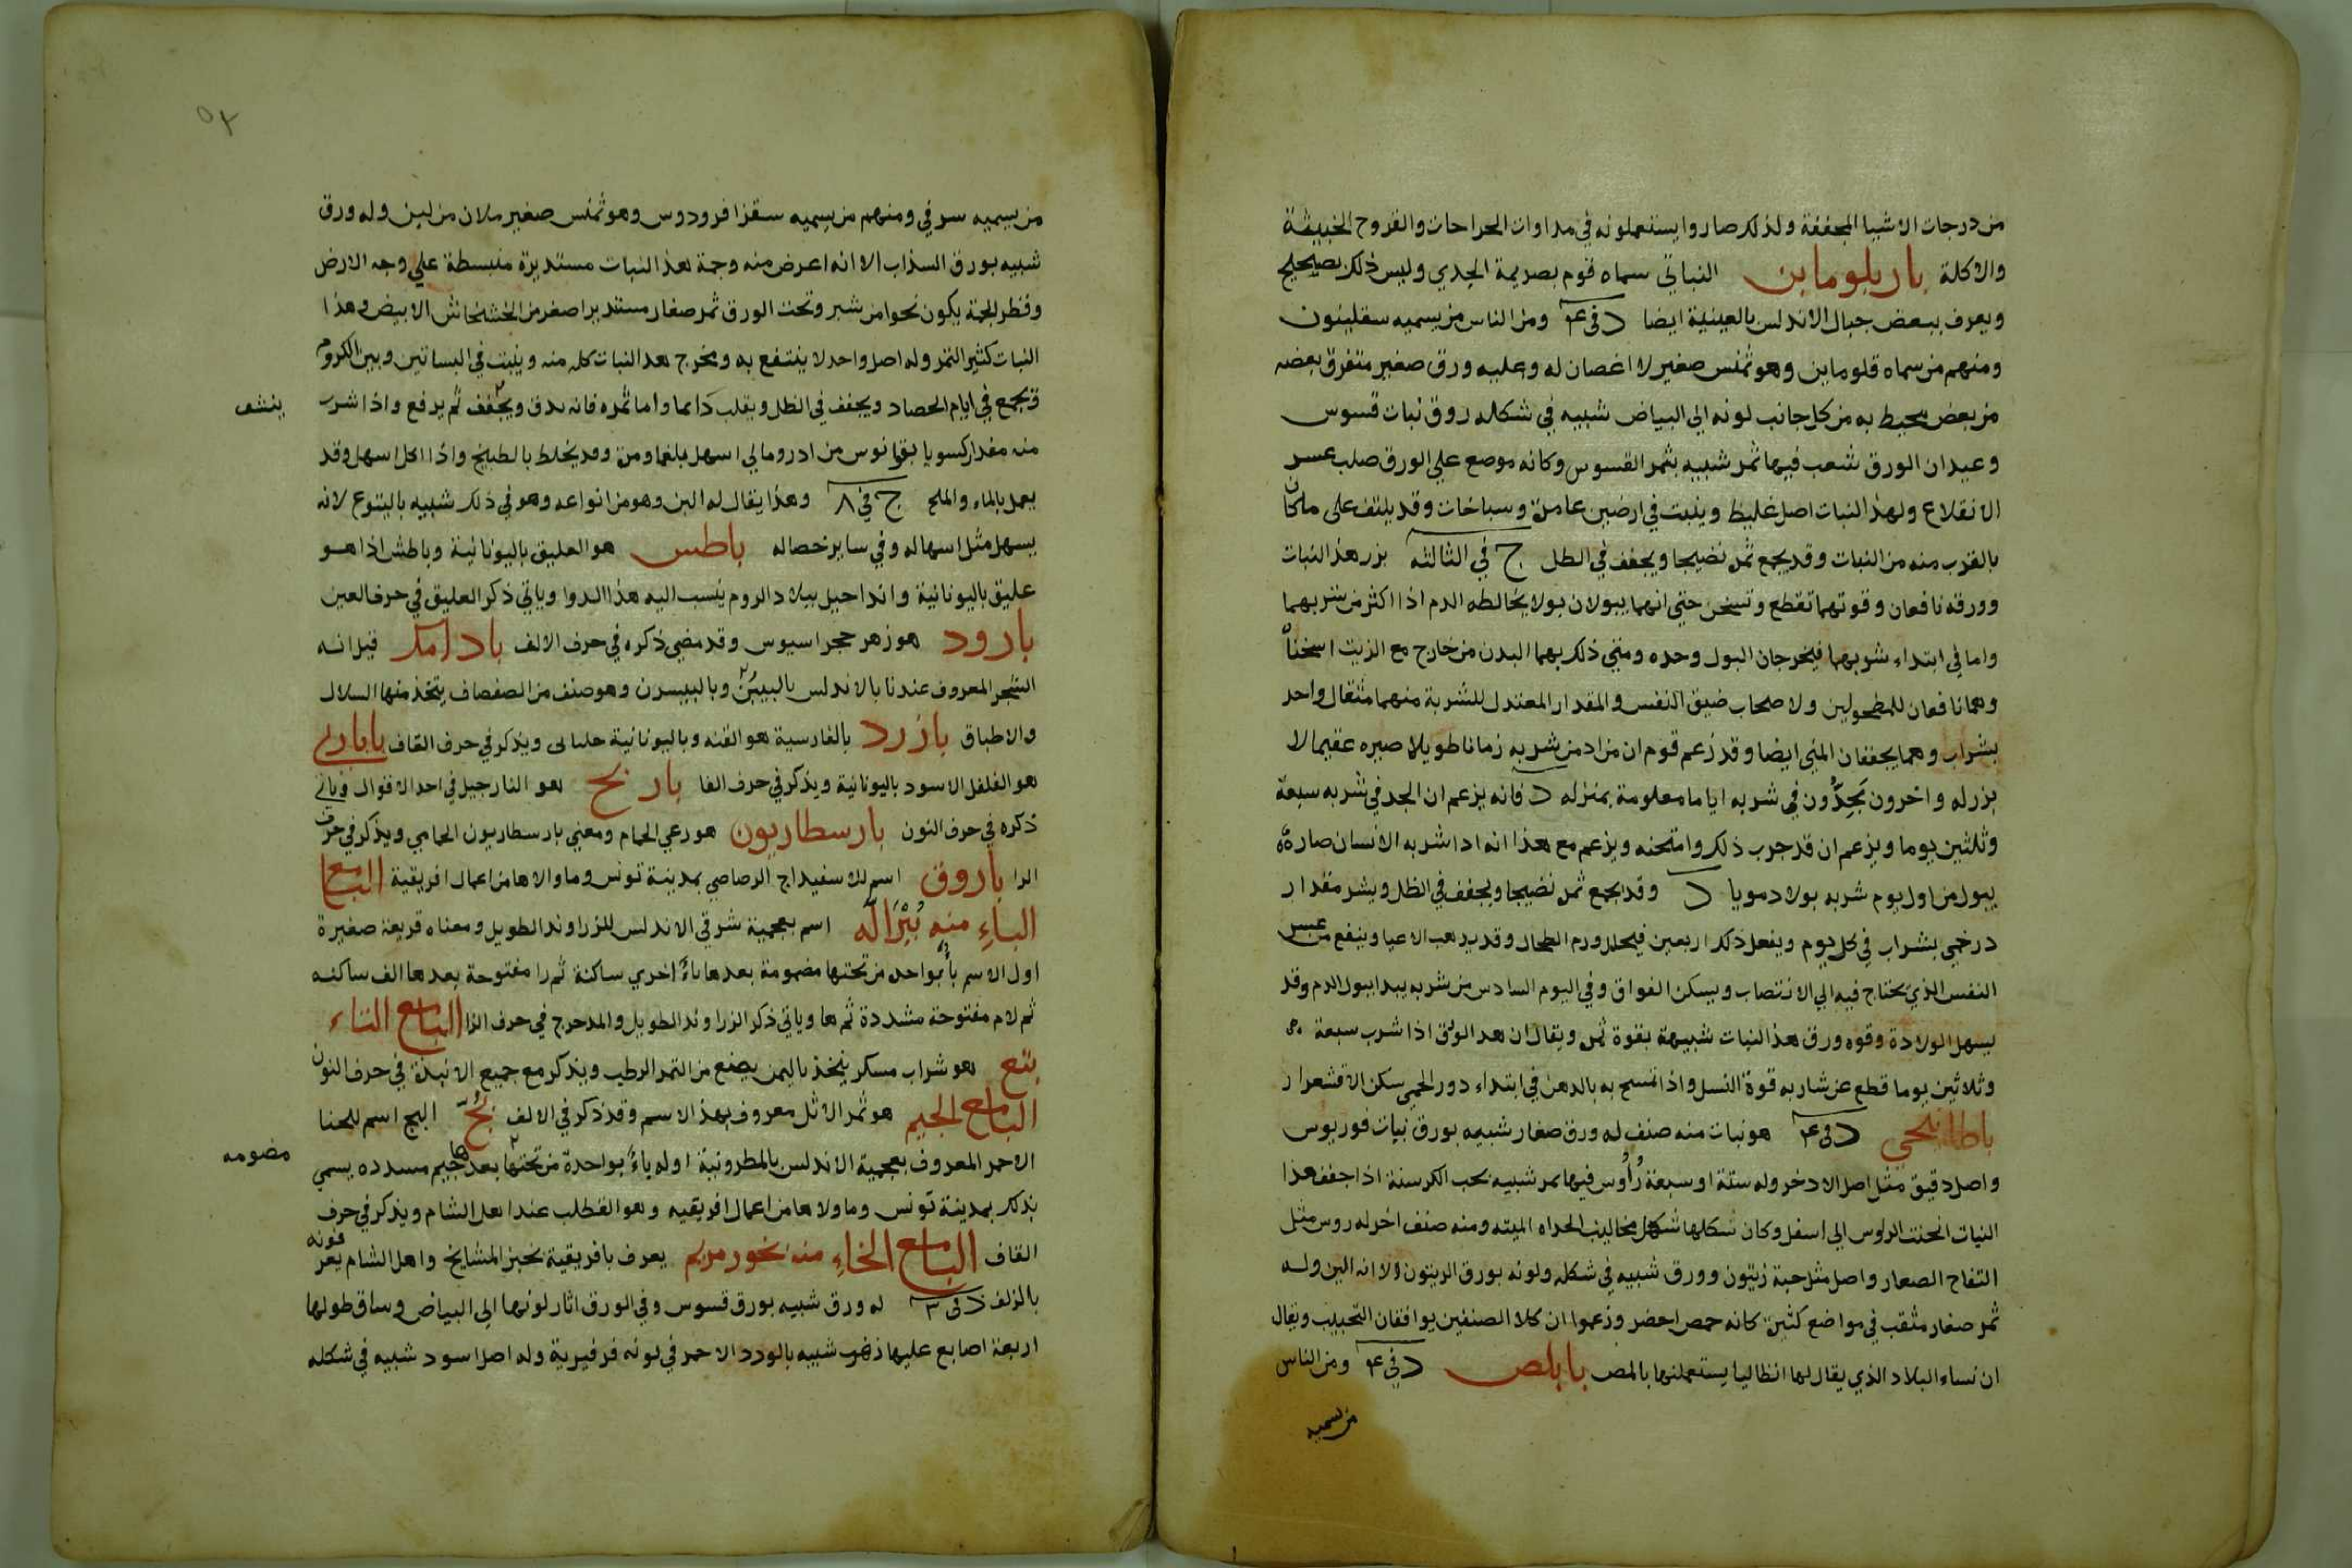 من درجات الاشيا المجففة ولذلك صاروا يستعملونه في مداوات الجراحات والقروح الخبيثة
والاكلة باريلوماين النباتي سماه قوم بصريمة الجدي وليس ذلك بصحيح
ويعرف ببعض جبال الاندلس بالعينية ايضا د في ٤ ومن الناس من يسميه سقلينون
ومنهم من سماه قلوماين وهو تمنس صغير لا اغصان له وعليه ورق صغير متفرق بعضه
من بعض محيط به من كل جانب لونه الي البياض شبيه في شكله روق نبات قسوس
وعيدان الورق شعب فيها ثمر شبيه بثمر القسوس وكانه موضع علي الورق صلب عسر
الانقلاع ولهذا النبات اصل غليظ وينبت في ارضين عامرة وسباخات وقد يلتف على ما كان
بالقرب منه من النبات وقد يجمع ثمره نضيجا ويجفف في الظل ج في الثالثة بزر هذا النبات
وورقه نافعان وقوتهما تقطع وتسخن حتي انهما يبولان بولا يخالطه الدم اذا اكثر من شربهما
واما في ابتداء شربهما فيخرجان البول وحده ومتي دلك بهما البدن من خارج مع الزيت اسخناه
وهما نافعان للمطحولين ولاصحاب ضيق النفس والمقدار المعتدل للشربة منهما مثقال واحد
بشراب وهما يجففان المني ايضا وقد زعم قوم ان من ادمن شربه زمانا طويلا صيره عقيما لا
بزر له واخرون يحدون في شربه اياما معلومة بمنزله د فانه يزعم ان الحد في شربه سبعة
وثلثين يوما ويزعم ان قد جرب ذلك وامتحنه ويزعم مع هذا انه اذا شربه الانسان صار
يبول من اول يوم شربه بولا دمويا د وقد يجمع ثمره نضيجا ويجفف في الظل ويشر مقدار
درخمي بشراب في كل يوم ويفعل ذلك اربعين فيحلل ورم الطحال وقد يذهب الاعيا وينفع من عسر
النفس الذي يحتاج فيه الي الانتصاب ويسكن الفواق وفي اليوم السادس من شربه يبدا ببول الدم وقد
يسهل الولادة وقوه ورق هذا النبات شبيهة بقوة ثمره ويقال ان هذا الورق اذا شرب سبعة
وثلاثين يوما قطع عن شاربه قوة النسل واذا تمسح به بالدهن في ابتداء دور الحمي سكن الاقشعرار
باطانيخي د في ٤ هو نبات منه صنف له ورق صغار شبيه بورق نبات قورنوس
واصل دقيق مثل اصل الادخر وله ستة او سبعة رأوس فيها ثمر شبيه بحب الكرسنة اذا جفف هذا
النبات انحنت الروس الي اسفل وكان شكلها شكل مخاليب الحداه الميته ومنه صنف اخر له روس مثل
التفاح الصغار واصل مثل حبة زيتون وورق شبيه في شكله ولونه بورق الزيتون الا انه الين وله
ثمر صغار مثقب في مواضع كثيرة كانه حمص احضر وزعموا ان كلا الصنفين يوافقان التحبيب ويقال
ان نساء البلاد الذي يقال لها انظاليا يستعملنها بالمص بابلص د في ٤ ومن الناس
من يسميه
٥٢
من يسميه سرفي ومنهم من يسميه سقزا فرودوس وهو ثمنس صغير ملان من لبن وله ورق
شبيه بورق السذاب الا انه اعرض منه وجمة هذا النبات مستديرة منبسطة علي وجه الارض
وقطر الجمة يكون نحوا من شبر وتحت الورق ثمر صغار مستديرا صغر من الخشخاش الابيض وهذا
النبات كثير الثمر وله اصل واحد لا ينتفع به ومخرج هذا النبات كله منه وينبت في البساتين وبين الكروم
ويجمع في ايام الحصاد ويجفف في الظل ويقلب دائما واما ثمره فانه يدق ويجفف ثم يرفع واذا شرب
ينشف
منه مقدار كسوبا بقوانوس من ادرومالي اسهل بلغما ومرة وقد يخلط بالطبيخ واذا اكل اسهل وقد
يعمل بالماء والملح ج في ٨ وهذا يقال له البن وهو من انواعه وهو في ذلك شبيه باليتوع لانه
يسهل مثل اسهاله وفي ساير خصاله باطس هو العليق باليونانية وباطش اذا هو
عليق باليونانية واندا جبل ببلاد الروم ينسب اليه هذا الدوا وياتي ذكر العليق في حرف العين
بارود هو زهر حجر اسيوس وقد مضي ذكره في حرف الالف بادامك قيل انه
الشجر المعروف عندنا بالاندلس بالبيبن وبالبيسرن وهو صنف من الصفصاف يتخذ منها السلال
والاطباق بازرد بالفارسية هو القنه وباليونانية حلباني ويذكر في حرف القاف بابارى
هو الفلفل الاسود باليونانية ويذكر في حرف الفا بارنج هو النارجيل في احد الاقوال وياتي
ذكره في حرف النون بارسطاريون هو رعي الحمام ومعني بارسطاريون الحمامي ويذكر في حرف
الرا باروق اسم للاسفيداج الرصاصي بمدينة تونس وما والاها من اعمال افريقية البا مع
الباء منه بيرالة اسم بعجمية شرقي الاندلس للزراوند الطويل ومعناه قريعة صغيرة
اول الاسم باء بواحده من تحتها مضمومة بعدها ياء اخري ساكنة ثم را مفتوحة بعدها الف ساكنه
ثم لام مفتوحة مشددة ثم ها وياتي ذكر الزراوند الطويل والمدحرج في حرف الزا البا مع التاء
بتع هو شراب مسكر يتخذ باليمن يصنع من التمر الرطب ويذكر مع جميع الانبذة في حرف النون
البا مع الجيم هو ثمر الاثل معروف بهذا الاسم وقد ذكر في الالف بج البج اسم للجنا
الاحمر المعروف بعجمية الاندلس بالمطرونية اوله باء بواحدة من تحتها بعدها جيم مسدده يسمي
مضمومه
بذلك بمدينة تونس وماولاها من اعمال افريقيه وهو القطلب عند اهل الشام ويذكر في حرف
القاف البا مع الخاء منه بخور مريم يعرف بافريقية بخبز المشايخ واهل الشام يعرفونه
بالزلف د في ٢ له ورق شبيه بورق قسوس وفي الورق اثار لونها الي البياض وساق طولها
اربعة اصابع عليها زهر شبيه بالورد الاحمر في لونه فرفيرية وله اصل اسود شبيه في شكله